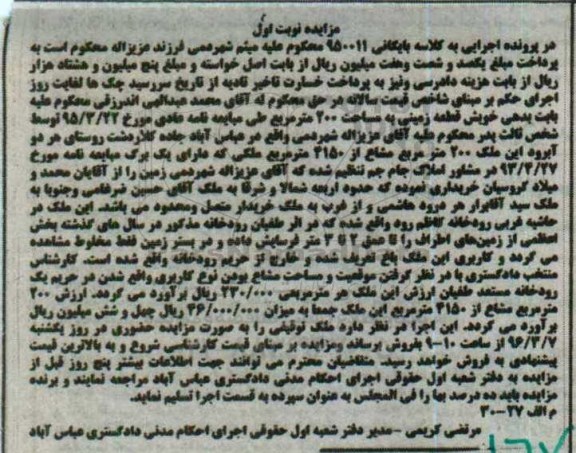 مزایده نوبت اول
در پرونده اجرایی به کلاسه بایگانی ۹۵۰۰۱۱ محکوم علیه میثم شهردمی فرزند عزیزاله محکوم است به
پرداخت مبلغ یکصد و شصت وهفت میلیون ریال از بابت اصل خواسته و مبلغ پنج میلیون و هشتاد هزار
ریال از بابت هزینه دادرسی ونیز به پرداخت خسارت تاخیر تادیه از تاریخ سررسید چک ها لغایت روز
اجرای حکم بر مبنای شاخص قیمت سالانه در حق محکوم له آقای محمد عبدالهی اندرزقی محکوم علیه
بابت بدهی خویش قطعه زمینی به مساحت ۲۰۰ مترمربع طی مبایعه نامه عادی مورخ ۹۵/۳/۲۲ توسط
شخص ثالث پدر محکوم علیه آقای عزیزاله شهردمی واقع در عباس آباد جاده کلاردشت روستای هر دو
آبرود این ملک ۲۰۰ متر مربع مشاع از ۳۱۵۰ مترمربع ملکی که دارای یک برگ مبایعه نامه مورخ
۹۳/۴/۲۷ در مشاور املاک جام جم تنظیم شده که آقای عزیزاله شهردمی زمین را از آقایان محمد و
میلاد گروسیان خریداری نموده که حدود اربعه شمالا و شرقا به ملک آقای حسین ضرغامی وجنوبا به
ملک سید آقابرار هر درود هاشمی و از غرب به ملک خریدار متصل ومحدود می باشد. این ملک در
حاشیه غربی رودخانه کاظم رود واقع شده که در اثر طغیان رودخانه مذکور در سال های گذشته بخش
اعظمی از زمین‌های اطراف را تا عمق ۲ تا ۳ متر فرسایش داده و در بستر زمین فقط مخلوط مشاهده
می گردد و کاربری این ملک باغ تعریف شده و خارج از حریم رودخانه واقع شده است. کارشناس
منتخب دادگستری با در نظر گرفتن موقعیت و مساحت مشاع بودن نوع کاربری واقع شدن در حریم یک
رودخانه مستعد طغیان ارزش این ملک هر مترمربعی ۲۳۰/۰۰۰ ریال برآورد می گردد. ارزش ۲۰۰
مترمربع مشاع از ۳۱۵۰ مترمربع این ملک جمعا به میزان ۴۶/۰۰۰/۰۰۰ ریال چهل و شش میلیون ریال
برآورد می گردد. این اجرا در نظر دارد ملک توقیفی را به صورت مزایده حضوری در روز یکشنبه
۹۶/۳/۷ از ساعت ۱۰-۹ بفروش برساند ومزایده بر مبنای قیمت کارشناسی شروع و به بالاترین قیمت
پیشنهادی به فروش خواهد رسید. متقاضیان محترم می توانند جهت اطلاعات بیشتر پنج روز قبل از
مزایده به دفتر شعبه اول حقوقی اجرای احکام مدنی دادگستری عباس آباد مراجعه نمایند و برنده
مزایده باید ده درصد بها را فی المجلس به عنوان سپرده به قسمت اجرا تسلیم نماید.
م الف ۲۷-۳۰
مرتضی کریمی -مدیر دفتر شعبه اول حقوقی اجرای احکام مدنی دادگستری عباس آباد